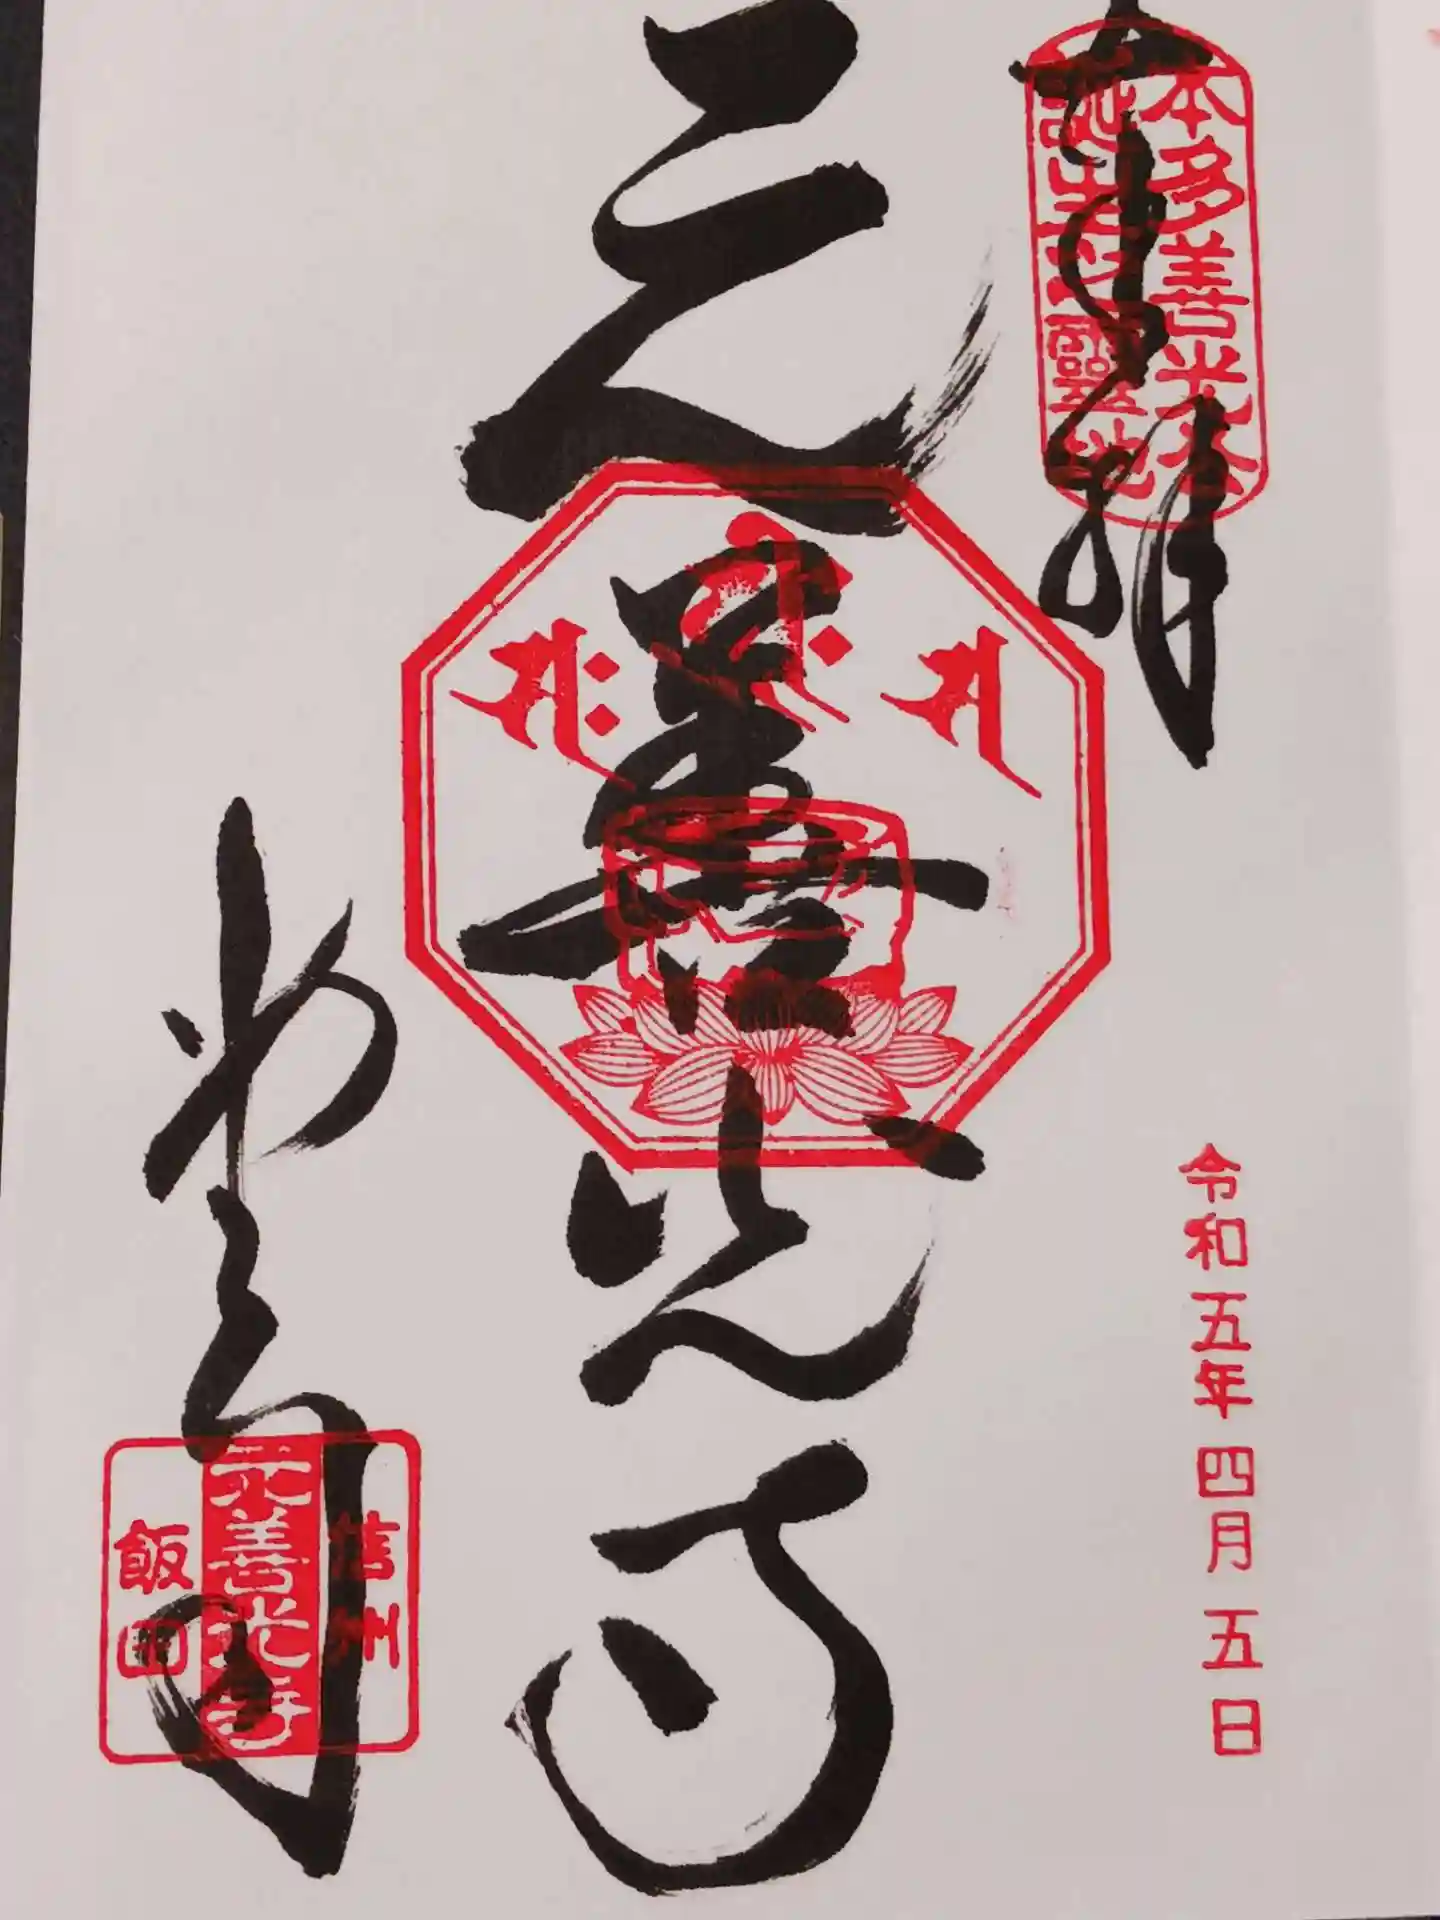 奉拝
本多善光公
誕生之靈地
令和五年四月五日
元善光寺
信州
元善光寺
飯田